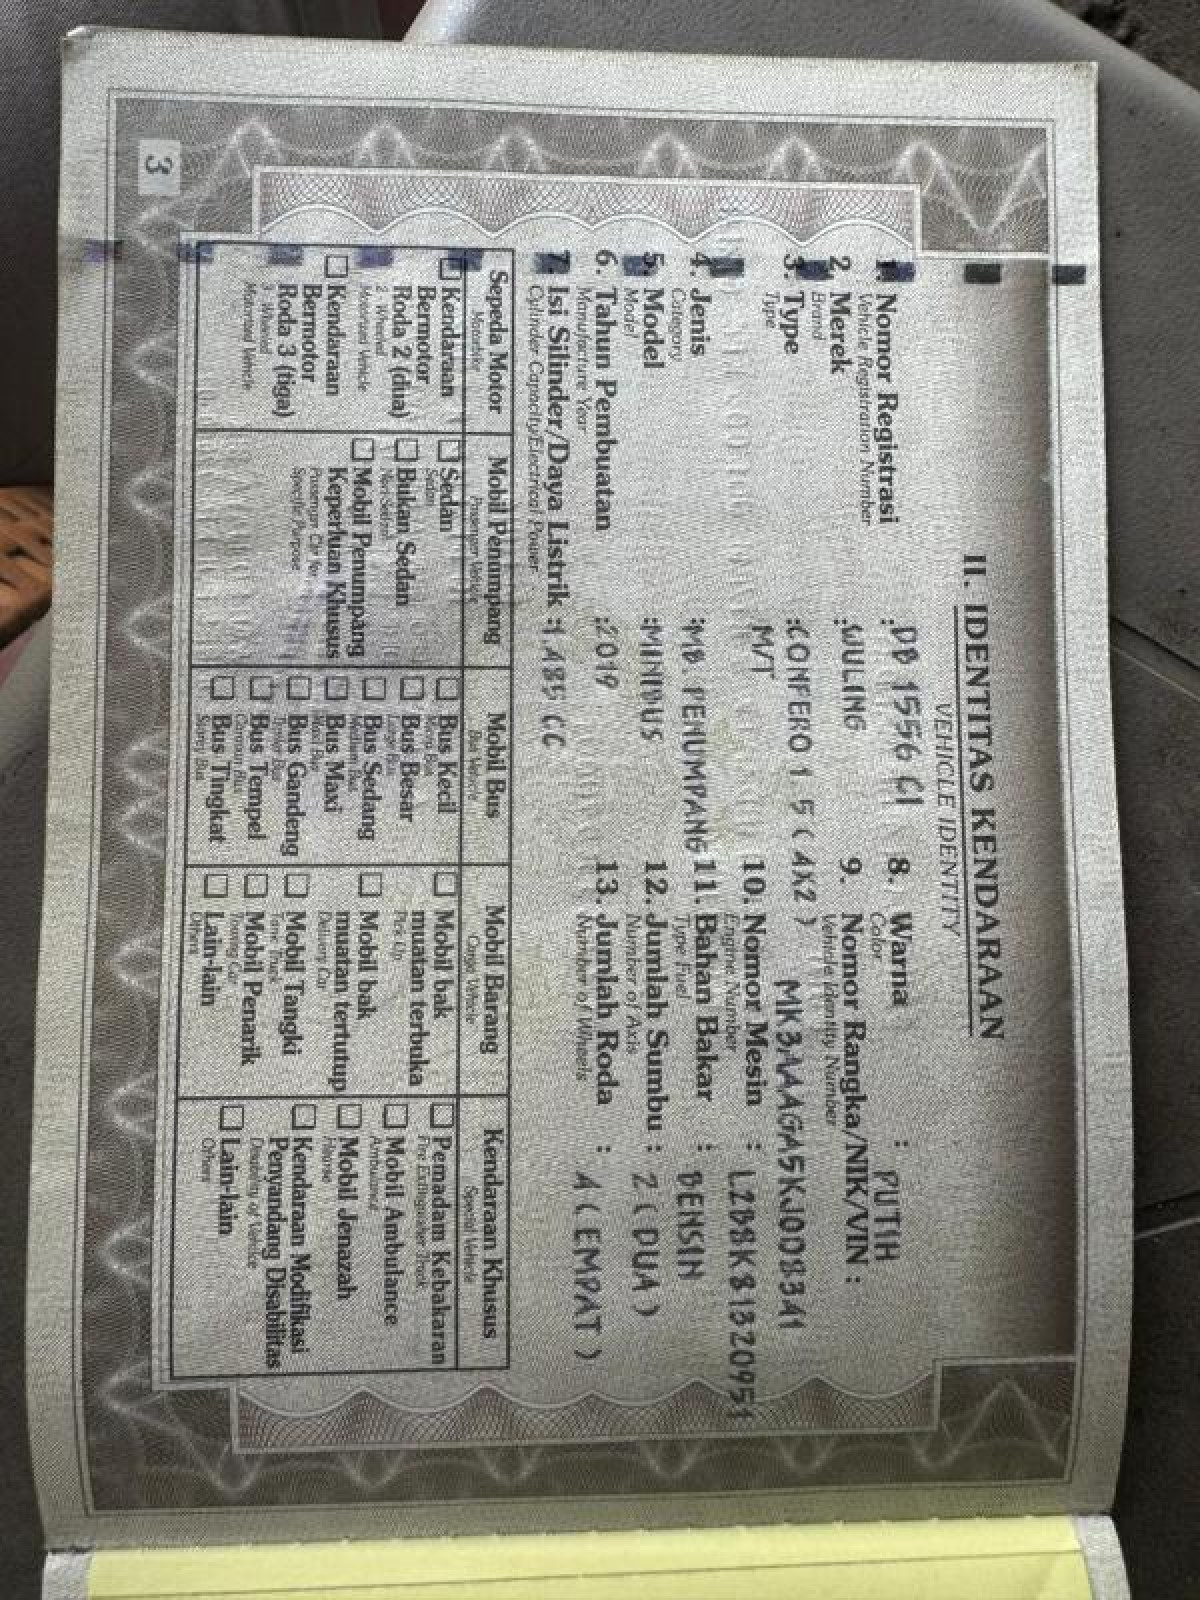 II. IDENTITAS KENDARAAN
VEHICLE IDENTITY
1. Nomor Registrasi : DB 1556 CI
Vehicle Registration Number
2. Merek : WULING
Brand
3. Type : CONFERO 1 5 ( 4X2 )
Type
M/T
4. Jenis : MB PENUMPANG
Category
5. Model : MINIBUS
Model
6. Tahun Pembuatan : 2019
Manufacture Year
7. Isi Silinder/Daya Listrik : 1.485 CC
Cylinder Capacity/Electrical Power
8. Warna : PUTIH
Color
9. Nomor Rangka/NIK/VIN :
Vehicle Identity Number
MK3AAAGA5KJ008341
10. Nomor Mesin : L2B8K81320951
Engine Number
11. Bahan Bakar : BENSIN
Type Fuel
12. Jumlah Sumbu : 2 ( DUA )
Number of Axis
13. Jumlah Roda : 4 ( EMPAT )
Number of Wheels
Sepeda Motor
Kendaraan
Bermotor
Roda 2 (dua)
2 Wheeled
Motorised Vehicle
Kendaraan
Bermotor
Roda 3 (tiga)
3 Wheeled
Motorised Vehicle
Mobil Penumpang
Passenger Vehicle
Sedan
Sedan
Bukan Sedan
Non-Sedan
Mobil Penumpang
Keperluan Khusus
Passenger Car for
Specific Purpose
Mobil Bus
Bus Vehicle
Bus Kecil
Bus Besar
Bus Sedang
Medium Bus
Bus Maxi
Maxi Bus
Bus Gandeng
Bus Tempel
Bus Tingkat
Mobil Barang
Cargo Vehicle
Mobil bak
muatan terbuka
Pick Up
Mobil bak
muatan tertutup
Delivery Car
Mobil Tangki
Tank Truck
Mobil Penarik
Towing Car
Lain-lain
Others
Kendaraan Khusus
Special Vehicle
Pemadam Kebakaran
Fire Extinguisher Truck
Mobil Ambulance
Mobil Jenazah
Hearse
Kendaraan Modifikasi
Penyandang Disabilitas
Lain-lain
Others
3